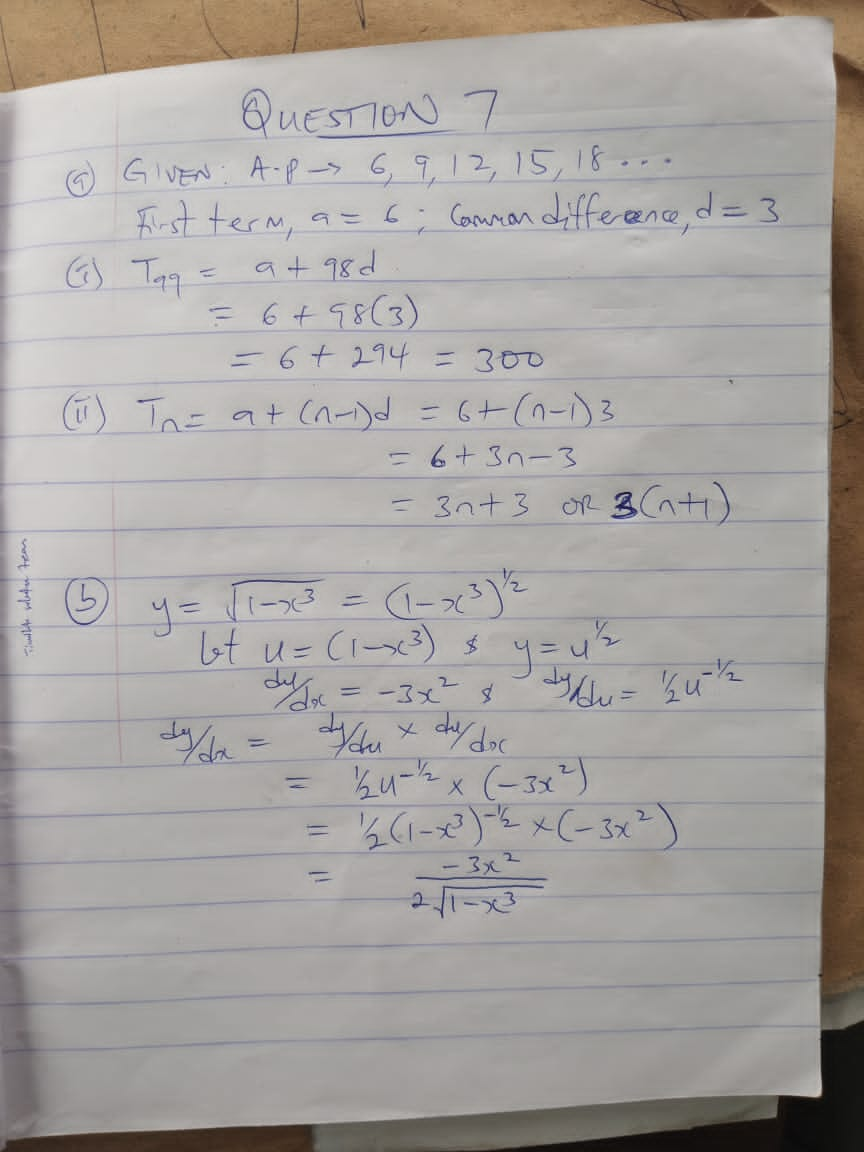 QUESTION 7
(a) GIVEN: A.P → 6, 9, 12, 15, 18 ...
First term, a = 6 ; Common difference, d = 3
(i) T₉₉ = a + 98d
= 6 + 98(3)
= 6 + 294 = 300
(ii) Tₙ = a + (n-1)d = 6 + (n-1)3
= 6 + 3n - 3
= 3n + 3 OR 3(n+1)
(b) y = √(1-x³) = (1-x³)^½
let u = (1-x³) & y = u^½
du/dx = -3x² & dy/du = ½u^-½
dy/dx = dy/du × du/dx
= ½u^-½ × (-3x²)
= ½(1-x³)^-½ × (-3x²)
= -3x² / 2√(1-x³)